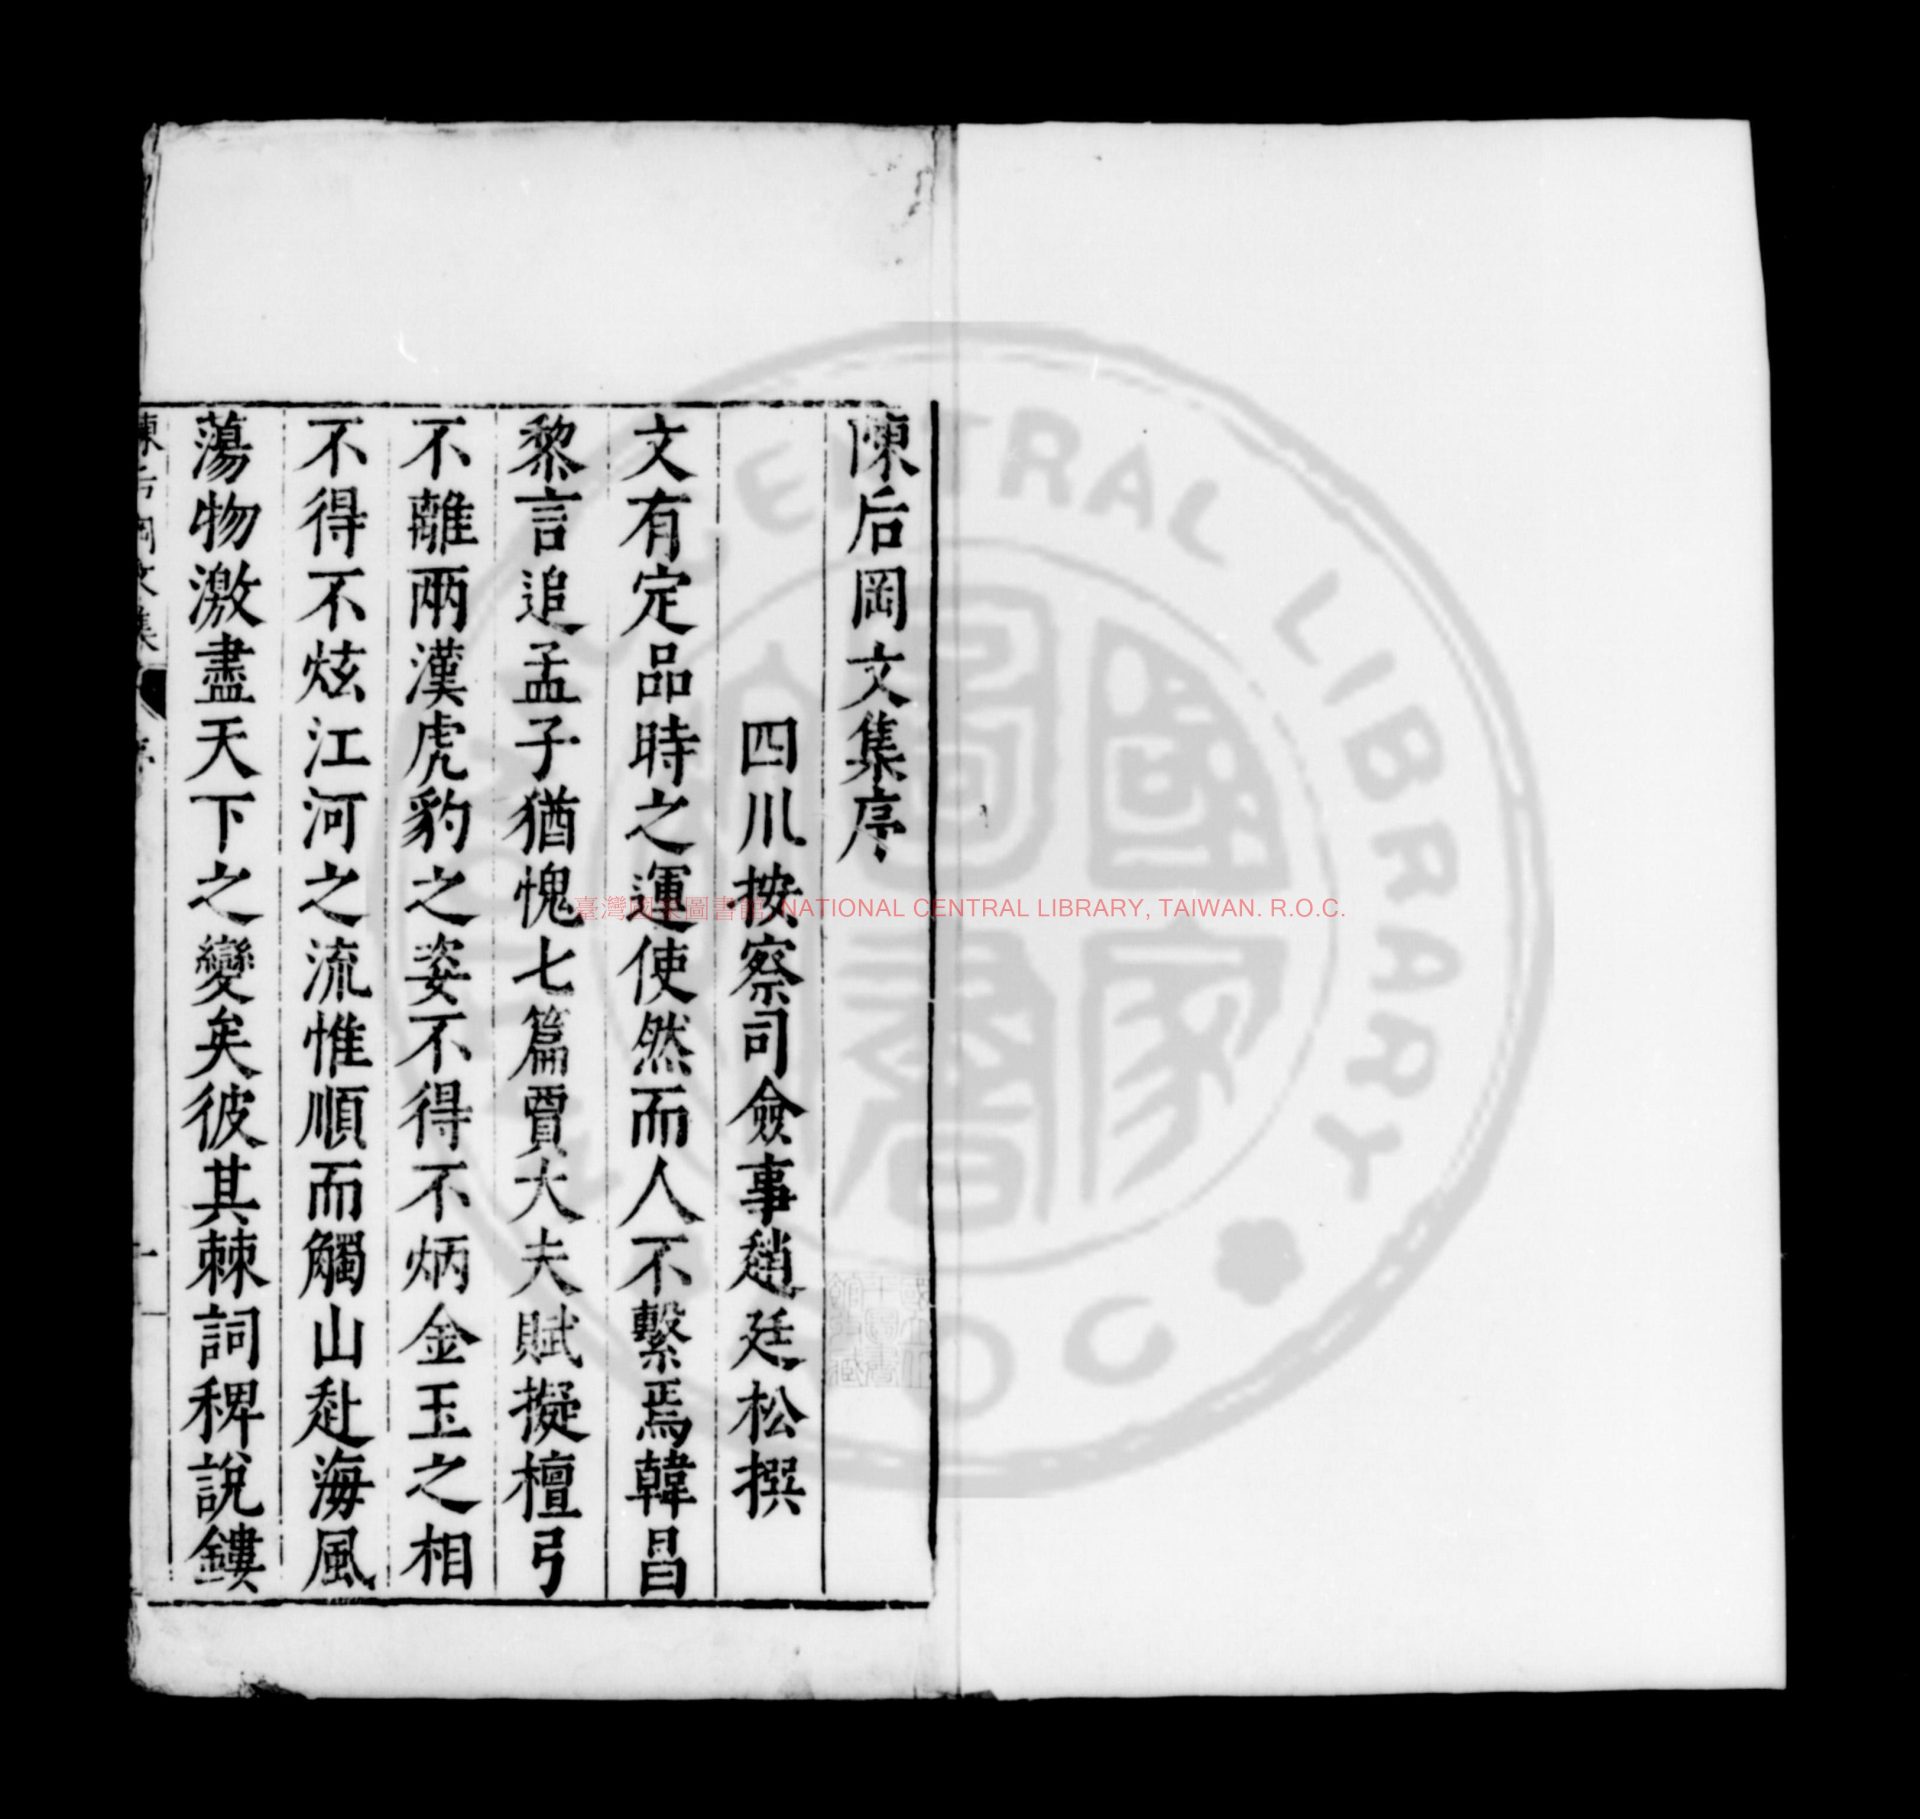 陳后岡文集序
四川按察司僉事趙廷松撰
文有定品時之運使然而人不繫焉韓昌
黎言追孟子猶愧七篇賈大夫賦擬檀弓
不離兩漢虎豹之姿不得不炳金玉之相
不得不炫江河之流惟順而觸山赴海風
蕩物激盡天下之變矣彼其棘詞稗說鏤
陳后岡文集 序 一
臺灣國家圖書館, NATIONAL CENTRAL LIBRARY, TAIWAN. R.O.C.
CENTRAL LIBRARY
國家圖書